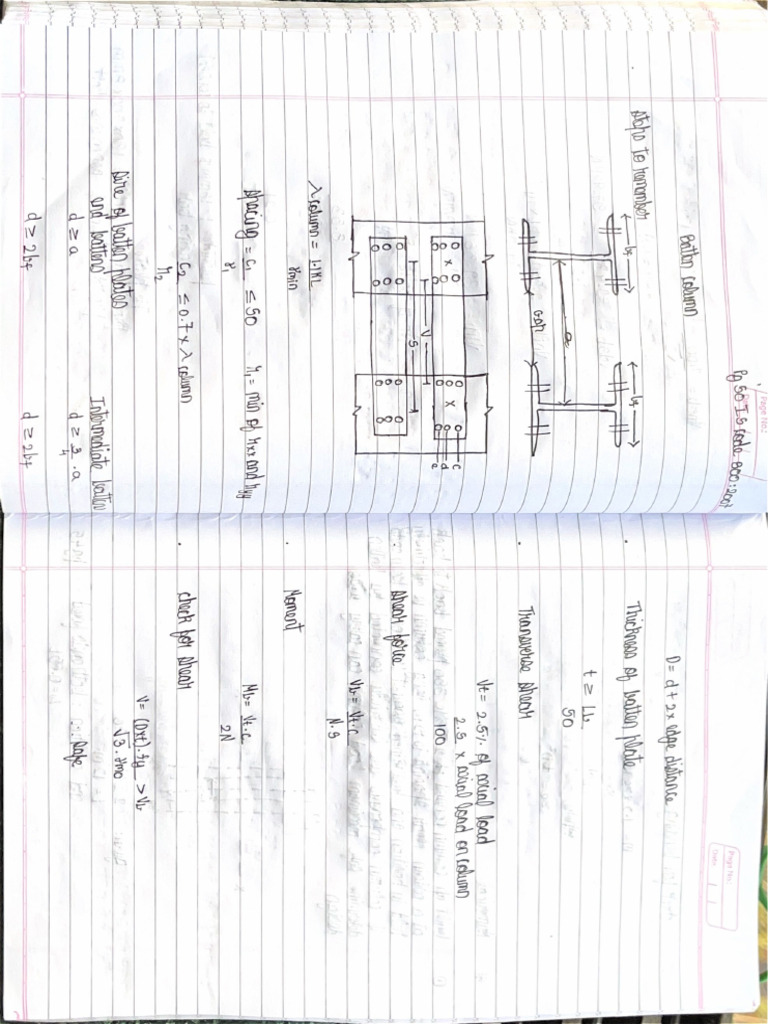 Page No.:
Pg 50 IS code 800:2007
Batten column
Steps to remember
bf
bf
a
Gap
x
x
V
S
c
d
e
λ column = 1.1KL
rmin
spacing = C1 ≤ 50
r1
r1 = min of rxx and ryy
C2 ≤ 0.7 x λ column
r2
Size of batten plates
end battens
Intermediate batten
d ≥ a
d ≥ 3/4 . a
d ≥ 2bf
d ≥ 2bf
Page No.
Date:
D = d + 2 x edge distance
Thickness of batten plate
t ≥ Lb
50
Transverse shear
Vt = 2.5% of axial load
2.5 x axial load on column
100
shear force
Vb = Vt.C
N.S
Moment
Mb = Vt.C
2N
check for shear
V = (Dxt).fy > Vb
√3.γmo
∴ Safe